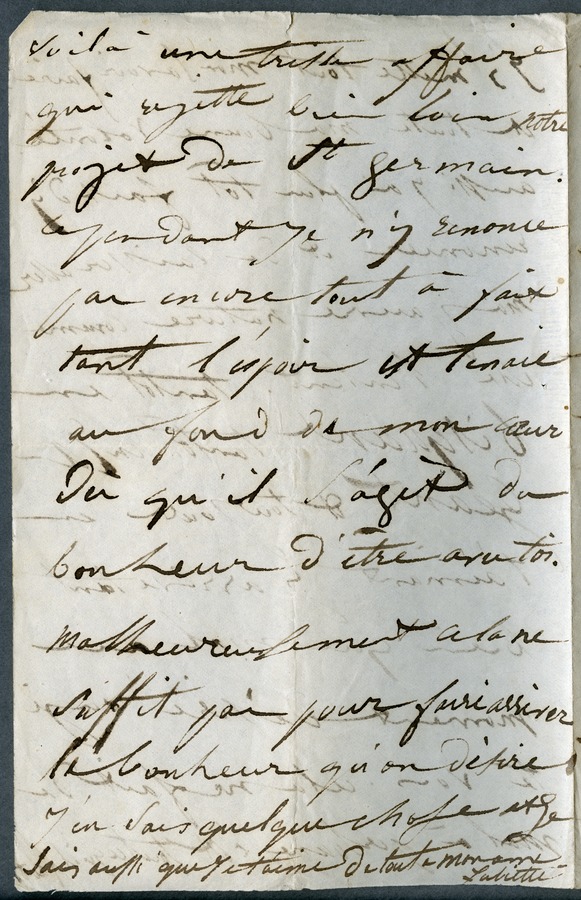 voilà une triste affaire
qui rejette bien loin notre
projet de St germain.
cependant je n'y renonce
pas encore tout à fait
tant l'espoir est tenace
au fond de mon cœur
Dès qu'il s'agit du
bonheur d'être avec toi.
Malheureusement cela ne
suffit pas pour faire arriver
le bonheur qu'on désire
J'en sais quelque chose et je
sais aussi que je t'aime de toute mon ame
Juliette